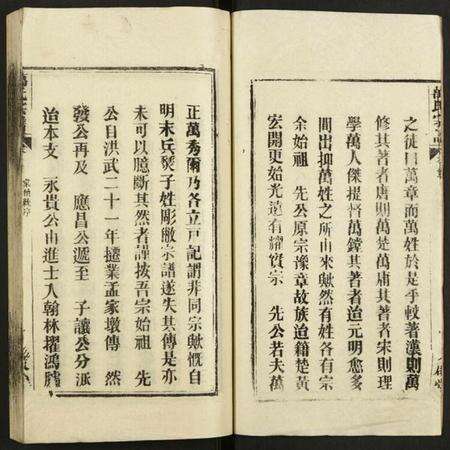 之徒曰萬章而萬姓於是乎較著漢則萬
修其著者唐則萬楚萬庸其著者宋則理
學萬人傑提督萬鏜其著者迨元明愈多
間出抑萬姓之所由來歟然有姓各有宗
余始祖 先公原宗豫章故族迨籍楚黃
宏開更始光遠有耀賢宗 先公若夫萬
正萬秀爾乃各立戸記謂非同宗歟慨自
明末兵燹子姓彫敝宗譜遂失其傳是亦
未可以臆斷其然者謹按吾宗始祖 先
公自洪武二十一年擡業孟家墩傳 然
發公再及 應昌公遞至 子讓公分派
迨本支 永貴公由進士入翰林擢鴻臚